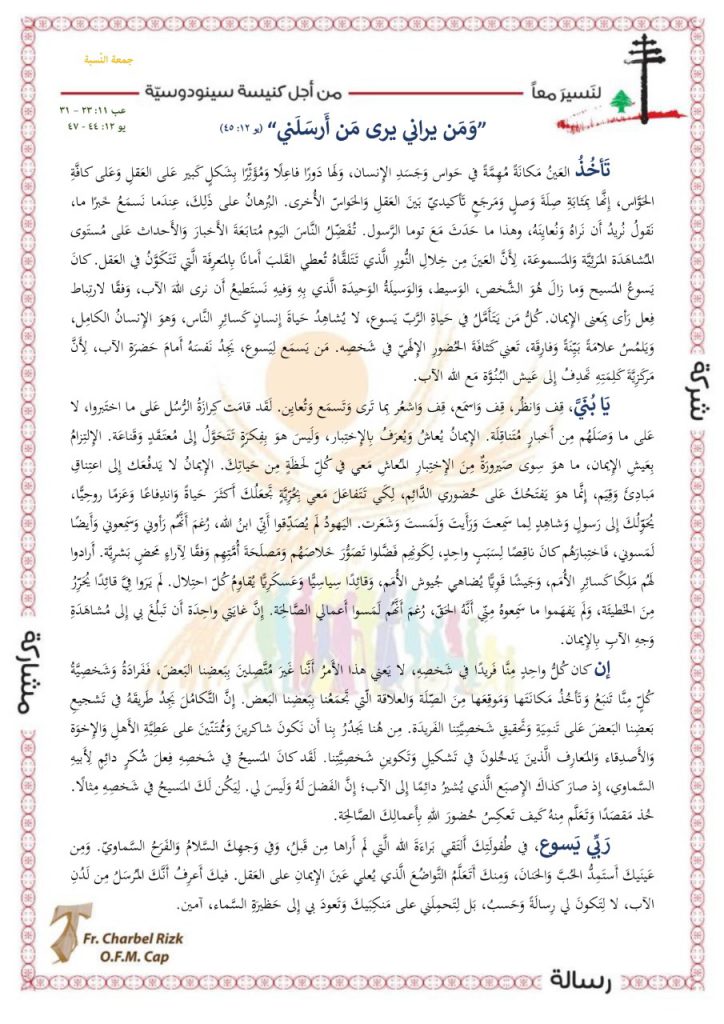 جمعة النّسبة
لنَسيرَ معاً
من أجل كنيسة سينودوسيّة
عب ١١: ٢٣ - ٣١
يو ١٢: ٤٤ - ٤٧
”وَمَن يراني يرى مَن أَرسَلَني“ (يو ١٢: ٤٥)
تَأخُذُ العَينُ مَكانَةً مُهِمَّةً في حَواس وَجَسَدِ الإنسان، وَلَها دَورًا فاعِلًا وَمُؤثِّرًا بِشَكلٍ كَبير عَلى العَقلِ وَعَلى كافَّةِ
الحَوَّاس، إنَّها بِمَثابَةِ صِلَةَ وَصلٍ وَمَرجَعٍ تأكيديّ بَينَ العَقلِ وَالحَواسّ الأُخرى. البُرهانُ على ذَلِكَ، عِندَما نَسمَعُ خَبرًا ما،
نَقولُ نُريدُ أن نَراهُ وَنُعايِنَهُ، وهذا ما حَدَثَ مَعَ توما الرَّسول. تُفَضِّلُ النَّاسَ اليَوم مُتابَعَةَ الأخبارَ وَالأحداث عَلى مُستَوى
المُشاهَدَة المَرَئِيَّة وَالمَسموعَة، لِأَنَّ العَينَ مِن خِلالِ النُّورِ الَّذي تَتَلقَّاهُ تُعطي القَلبَ أمانًا بِالمَعرِفَة الَّتي تَتَكَوَّنُ في العَقل. كانَ
يَسوعُ المَسيح وَما زالَ هُوَ الشَّخص، الوَسيط، وَالوَسيلَةُ الوَحيدَة الَّذي بِهِ وَفيهِ نَستَطيعُ أن نرى اللهَ الآب، وَفقًا لارتِباط
فِعل رَأى بِمَعنى الإيمان. كُلُّ مَن يَتَأمَّلُ في حَياةِ الرَّبّ يَسوع، لا يُشاهِدُ حَياةَ إنسانٍ كَسائِر النَّاس، وَهوَ الإنسانُ الكامِل،
وَيَلمُسُ علامَةً بَيِّنَةً وَفارِقَة، تَعني كَثافَةَ الحُضورِ الإلهِيّ في شَخصِهِ. مَن يَسمَع لِيَسوع، يَجِدُ نَفسَهُ أمامَ حَضرَةِ الآب، لِأَنَّ
مَركَزِيَّةَ كَلِمَتِهِ تَهدِفُ إلى عَيشِ البُنُوَّة مَع اللهِ الآب.
يَا بُنَيَّ، قِف وَانظُر، قِف وَاسمَع، قِف وَاشعُر بما تَرى وَتَسمَع وَتُعاين. لَقَد قامَت كِرازَةُ الرُّسُل عَلى ما اختَبروا، لا
عَلى ما وَصَلَهُم مِن أخبارٍ مُتَناقِلَة. الإيمانُ يُعاشُ وَيُعرَفُ بِالإختِبار، وَلَيسَ هوَ بِفِكرَةٍ تَتَحَوَّلُ إلى مُعتَقَدٍ وَقَناعَة. الإلتِزامُ
بِعَيشِ الإيمان، ما هوَ سِوى صَيرورَةً مِنَ الإختِبارِ المُعاشِ مَعي في كُلّ لَحظَةٍ مِن حَياتِكَ. الإيمانُ لا يَدفُعكَ إلى اعتِناقِ
مَبادِئَ وَقِيَم، إنَّما هوَ يَفتَحُكَ عَلى حُضوري الدَّائِم، لِكَي تَتَفاعَلَ مَعي بِحُرِّيَّةٍ تَجعَلُكَ أكثَرَ حَياةً وَاندِفاعًا وَعَزمًا روحِيًّا،
يُحَوِّلُكَ إلى رَسولٍ وَشاهِدٍ لِما سَمِعتَ وَرَأيتَ وَلَمَستَ وَشَعَرت. اليَهودُ لَم يُصَدِّقوا أنّي ابنُ الله، رُغمَ أنَّهُم رَأوني وَسَمِعوني وَأيضًا
لَمَسوني، فَاختِبارهُم كانَ ناقِصًا لِسَبَبٍ واحِد، لِكَونِهِم فَضَّلوا تَصَوُّرَ خَلاصَهُم وَمَصلَحَةَ أُمَّتِهِم وَفقًا لِآراءٍ مَحضِ بَشَرِيَّة. أرادوا
لَهُم مَلِكًا كَسائِرِ الأُمَم، وَجَيشًا قَوِيًّا يُضاهي جُيوشَ الأُمَم، وَقائِدًا سِياسِيًّا وَعَسكَرِيًّا يُقاوِمُ كُلّ احتِلال. لَم يَروا فِيَّ قائِدًا يُحَرِّرُ
مِنَ الخَطيئَة، وَلَم يَفهَموا ما سَمِعوهُ مِنّي أنَّهُ الحَقّ، رُغمَ أنَّهُم لَمَسوا أعمالي الصَّالِحَة. إنَّ غايَتي واحِدَة أن تَبلُغَ بي إلى مُشاهَدَةِ
وَجهِ الآبِ بِالإيمان.
إن كان كُلُّ واحِدٍ مِنَّا فَريدًا في شَخصِهِ، لا يَعني هذا الأمرُ أنَّنا غَيرَ مُتَّصِلينَ بِبَعضِنا البَعضَ، فَفَرادَةُ وَشَخصِيَّةُ
كُلٍّ مِنَّا تَنبَعُ وَتَأخُذُ مَكانَتَها وَمَوقِعَها مِنَ الصِّلَة وَالعلاقَة الَّتي تَجمَعُنا بِبَعضِنا البَعض. إنَّ التَّكامُلَ يَجِدُ طَريقَهُ في تَشجيعِ
بَعضِنا البَعضَ عَلى تَنمِيَةِ وَتَحقيقِ شَخصِيَّتِنا الفَريدَة. مِن هُنا يَجدُرُ بِنا أن نَكونَ شاكِرينَ وَمُمتَنّينَ على عَطِيَّةِ الأهلِ وَالإخوَة
وَالأصدِقاء وَالمَعارِف الَّذينَ يَدخُلونَ في تَشكيلِ وَتَكوينِ شَخصِيَّتِنا. لَقَد كانَ المَسيحُ في شَخصِهِ فِعلَ شُكرٍ دائِمٍ لِأبيهِ
السَّماوي، إذ صارَ كَذاكَ الإصبَع الَّذي يُشيرُ دائِمًا إلى الآب؛ إنَّ الفَضلَ لَهُ وَلَيسَ لي. لِيَكُن لَكَ المَسيحُ في شَخصِهِ مِثالًا.
خُذ مَقصَدًا وَتَعَلَّم مِنهُ كَيفَ تَعكِسُ حُضورَ اللهِ بِأعمالِكَ الصَّالِحَة.
رَبِّي يَسوع، في طُفولَتِكَ ألتَقي بَراءَةَ الله الَّتي لَم أراها مِن قَبلُ، وَفي وَجهِكَ السَّلامُ وَالفَرَحُ السَّماوِيّ. وَمِن
عَينَيكَ أستَمِدُّ الحُبَّ وَالحَنانَ، وَمِنكَ أتَعَلَّمُ التَّواضُعَ الَّذي يُعلي عَينَ الإيمانِ على العَقل. فيكَ أعرِفُ أنَّكَ المُرسَلُ مِن لَدُنِ
الآب، لا لِتَكونَ لي رِسالَةً وَحَسبُ، بَل لِتَحمِلَني على مَنكِبَيكَ وَتَعودَ بي إلى حَظيرَةِ السَّماء، آمين.
شركة
مشاركة
رسالة
Fr. Charbel Rizk
O.F.M. Cap